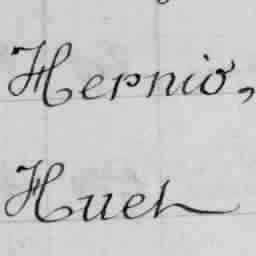 Hernio,
Huet